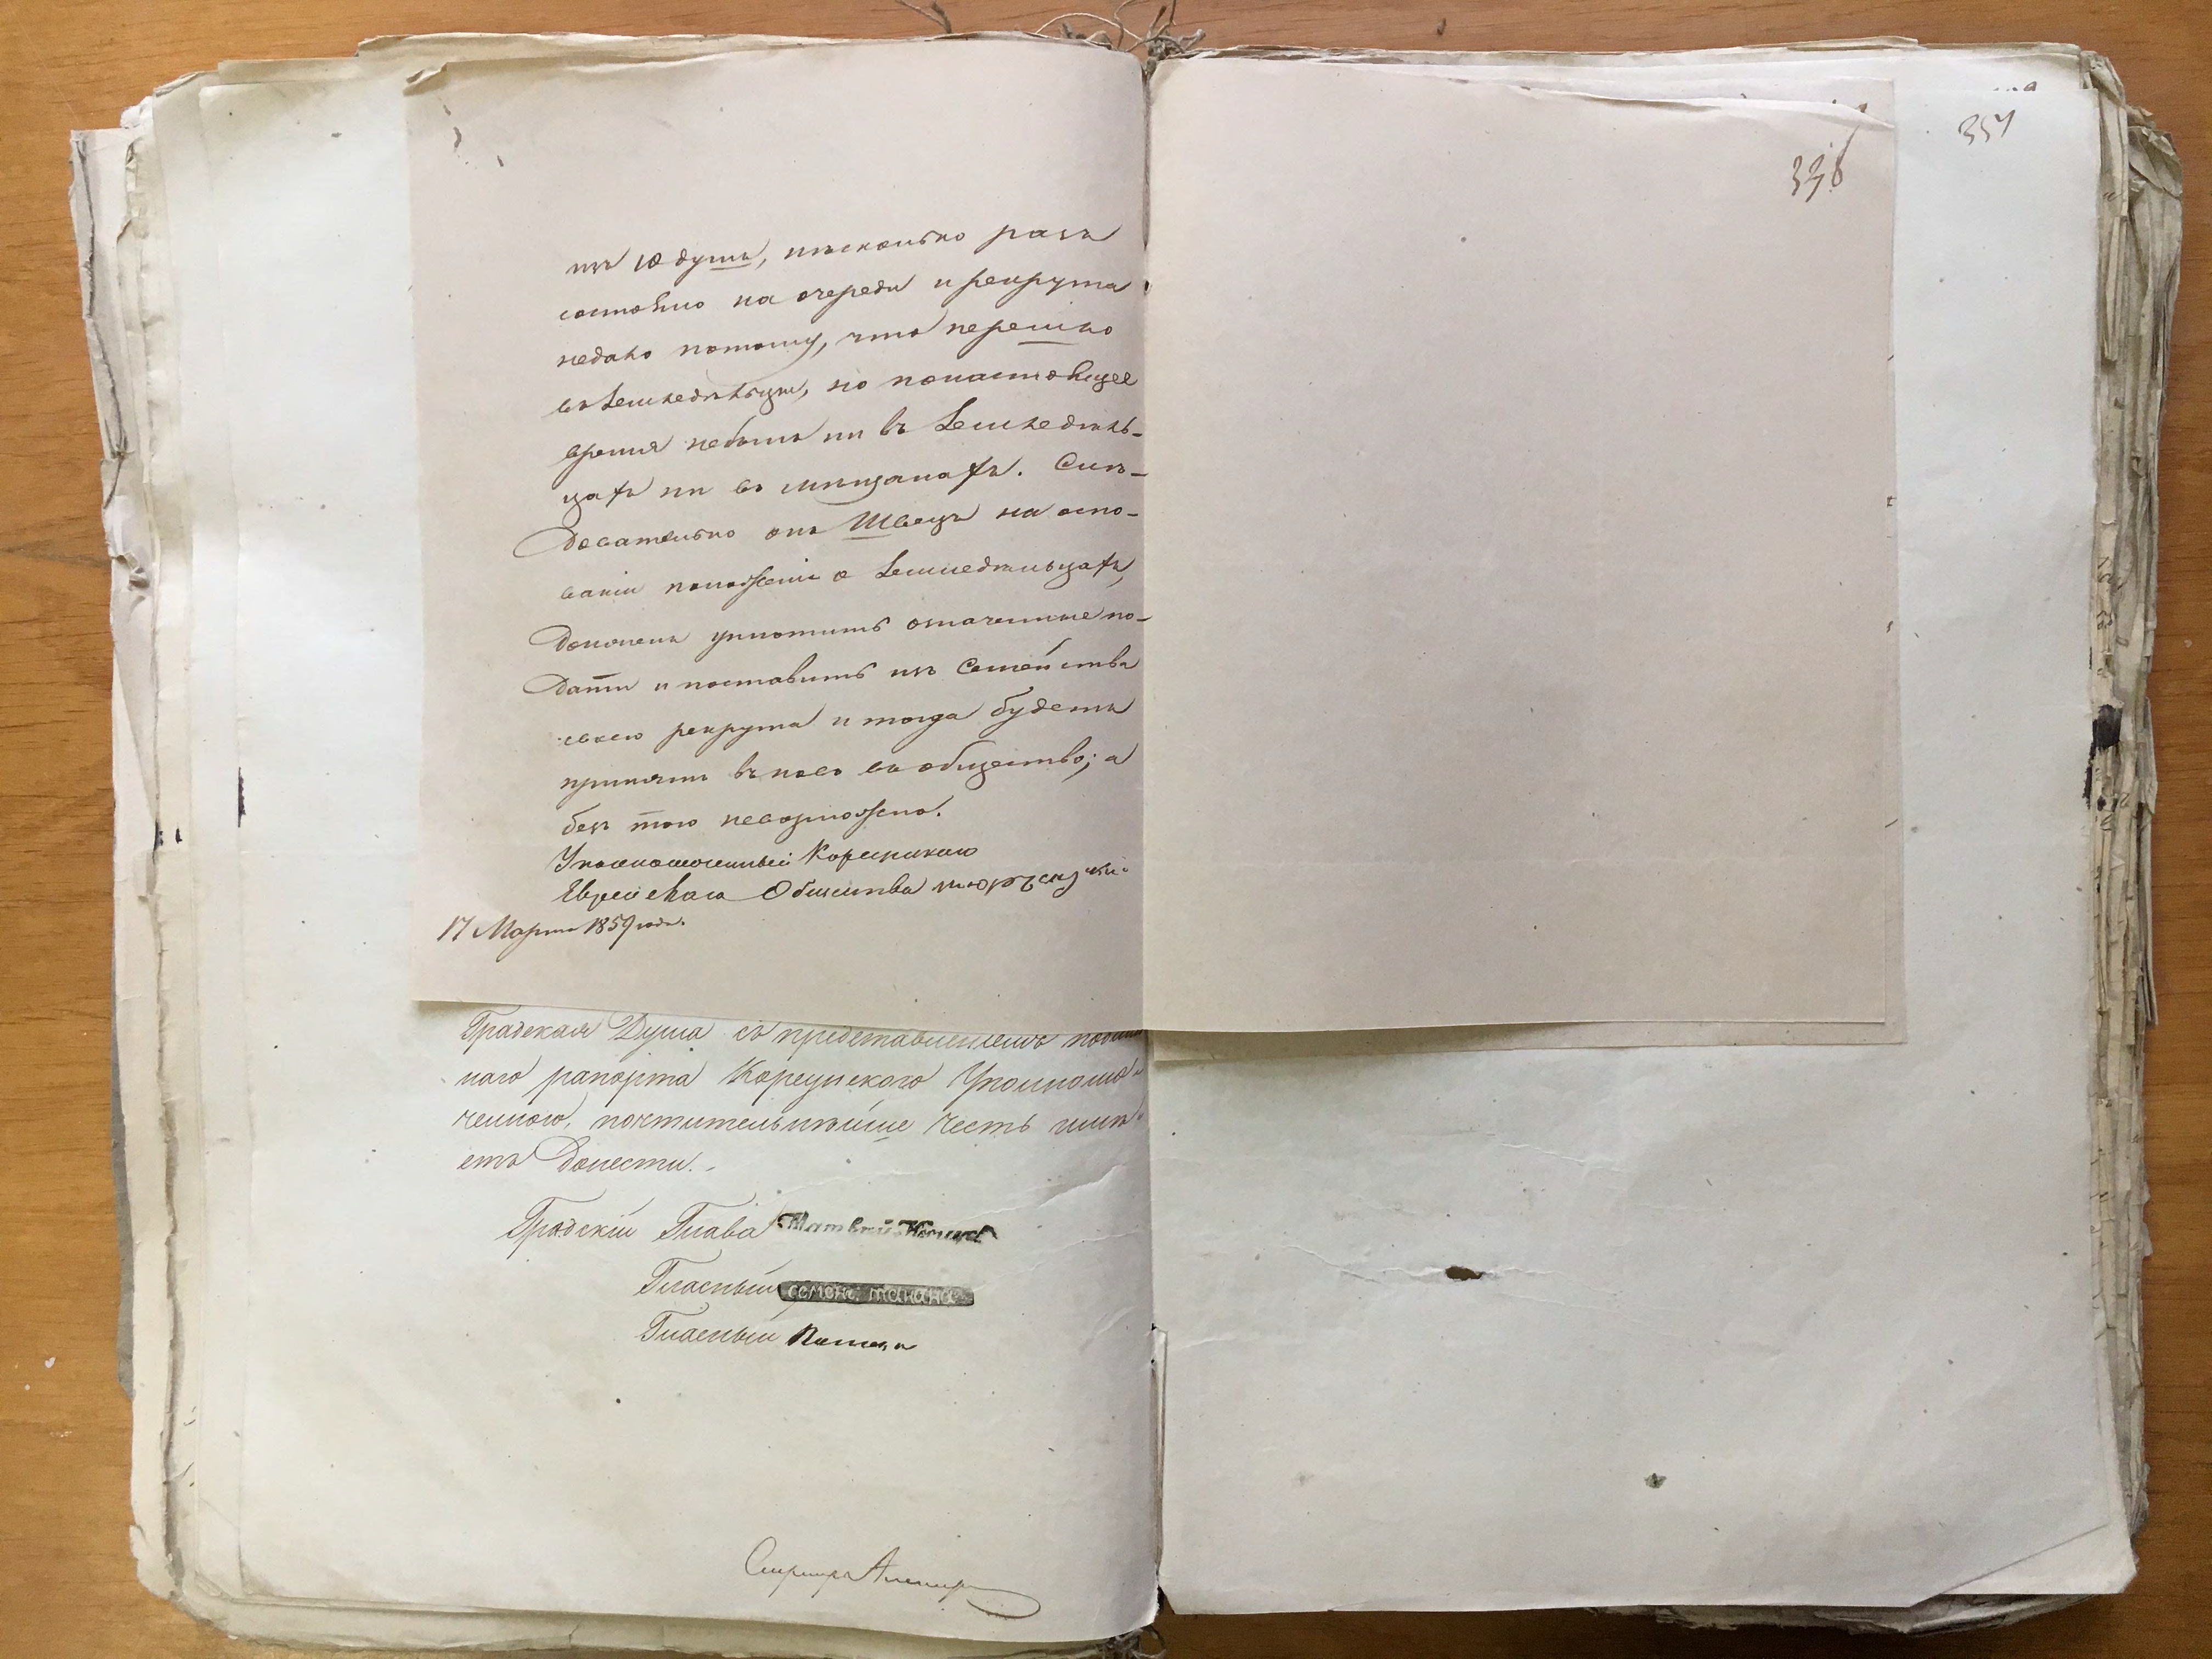 изъ 10 душъ, нѣсколько разъ
состояло на очереди и рекрута
недало потому, что перешло
въ Земледѣльцы, но понастоящее
время небылъ ни въ Земледѣль-
цахъ ни въ мѣщанахъ. Слѣ-
довательно онъ Швецъ на осно-
ваніи положенія о Земледѣльцахъ,
долженъ уплотить означенные по-
дати и поставить изъ Семейства
своего рекрута и тогда будетъ
принятъ въ наше общество; а
безъ того невозможно.
Уполномоченный Корсунскаго
Еврейскаго Общества
17 Марта 1859 года.
Градская Дума съ представленіемъ подлин
наго рапорта Корсунскаго Уполномо-
ченного, почтительнѣйше честь имѣ-
етъ донести.
Градскій Глава Матвей
Гласный семонъ танана
Гласный
Секретарь
336
354